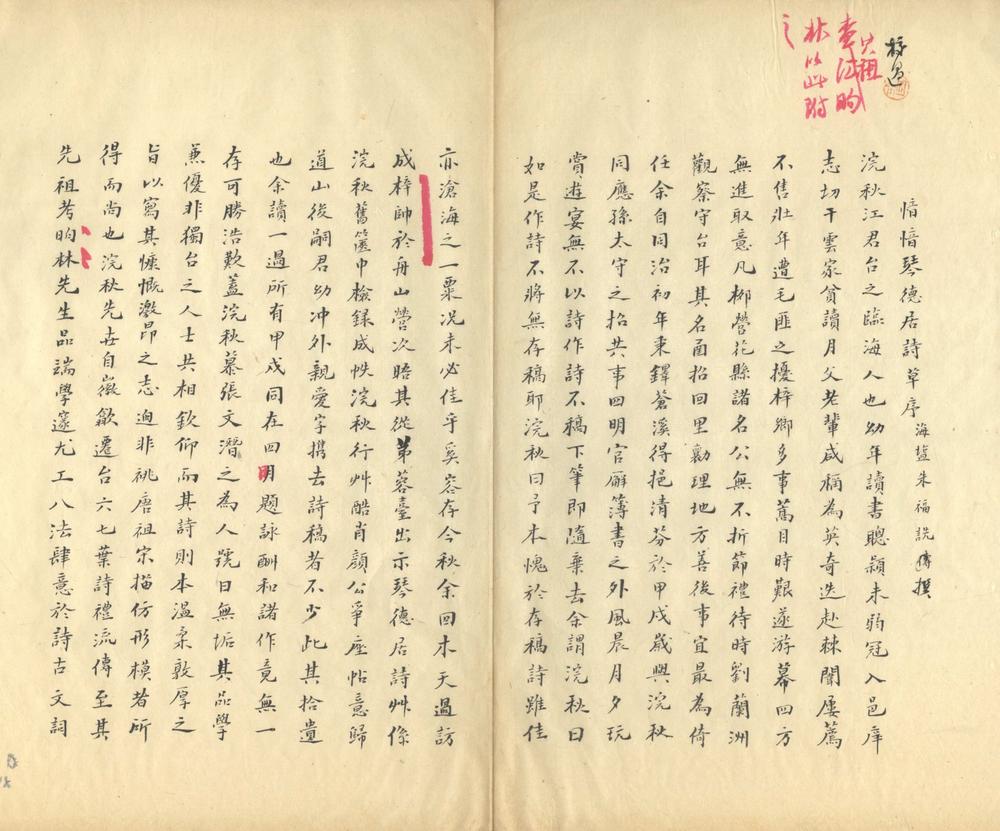 校過
其祖
昀
林以此附
之
愔愔琴德居詩草序 海塩朱福詵 撰
浣秋江君台之臨海人也幼年讀書聰穎未弱冠入邑庠
志切干雲家貧讀月父老輩咸稱為英奇迭赴棘闈屢薦
不售壯年遭毛匪之擾梓鄉多事蒿目時艱遂游幕四方
無進取意凡柳營花縣諸名公無不折節禮待時劉蘭洲
觀察守台耳其名函招回里勷理地方善後事宜最為倚
任余自同治初年秉鐸蒼溪得挹清芬於甲戌歲與浣秋
同應孫太守之招共事四明官廨簿書之外風晨月夕玩
賞遊宴無不以詩作詩不稿下筆即隨棄去余謂浣秋曰
如是作詩不將無存稿耶浣秋曰予本愧於存稿詩雖佳
亦滄海之一粟况未必佳乎奚容存今秋余回木天過訪
成梓帥於舟山營次晤其從弟蓉臺出示琴德居詩艸係
浣秋舊篋巾檢録成帙浣秋行艸酷肖顏公爭座帖意歸
道山後嗣君幼冲外親愛字携去詩稿者不少此其拾遺
也余讀一過所有甲戍同在四明題詠酬和諸作竟無一
存可勝浩歎蓋浣秋慕張文潛之為人號曰無垢其品學
兼優非獨台之人士共相欽仰而其詩則本溫柔敦厚之
旨以寫其慷慨激昂之志迥非祧唐祖宋描仿形模者所
得而尚也浣秋先世自徽歙遷台六七葉詩禮流傳至其
先祖考昀林先生品端學邃尤工八法肆意於詩古文詞